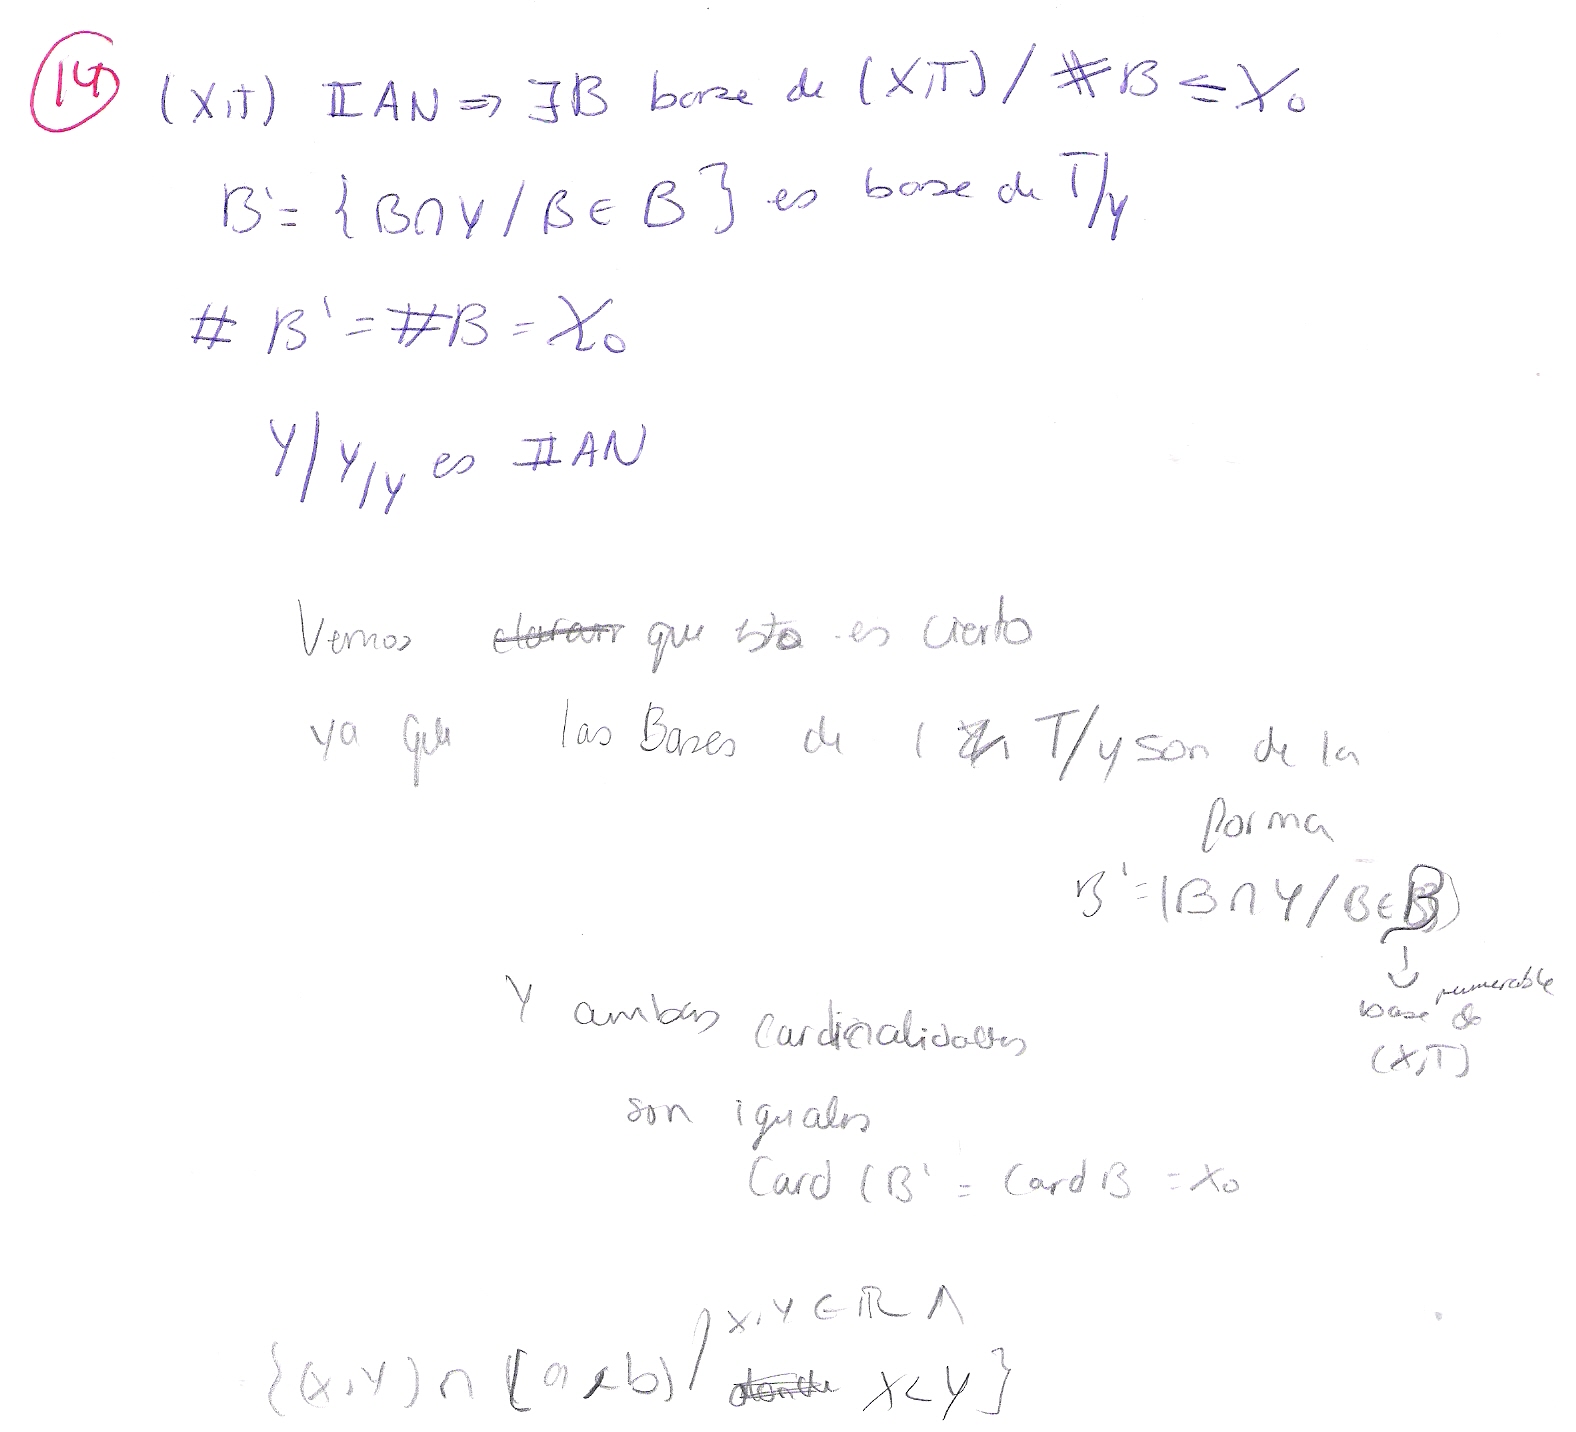 14 (X,T) II AN ⇒ ∃B base de (X,T) / #B ≤ χ₀
B' = {B∩Y / B ∈ B} es base de T/y
# B' = #B = χ₀
Y/Y/y es II AN
Vemos que esto es cierto
ya que las Bases de ( T/y son de la
forma
B' = {B∩Y / B∈B}
↓
base numerable de
(X,T)
Y ambas cardinalidades
son iguales
Card (B' = Card B = χ₀
{(x,y) ∩ [a,b) / x,y ∈ ℝ ∧
x<y}